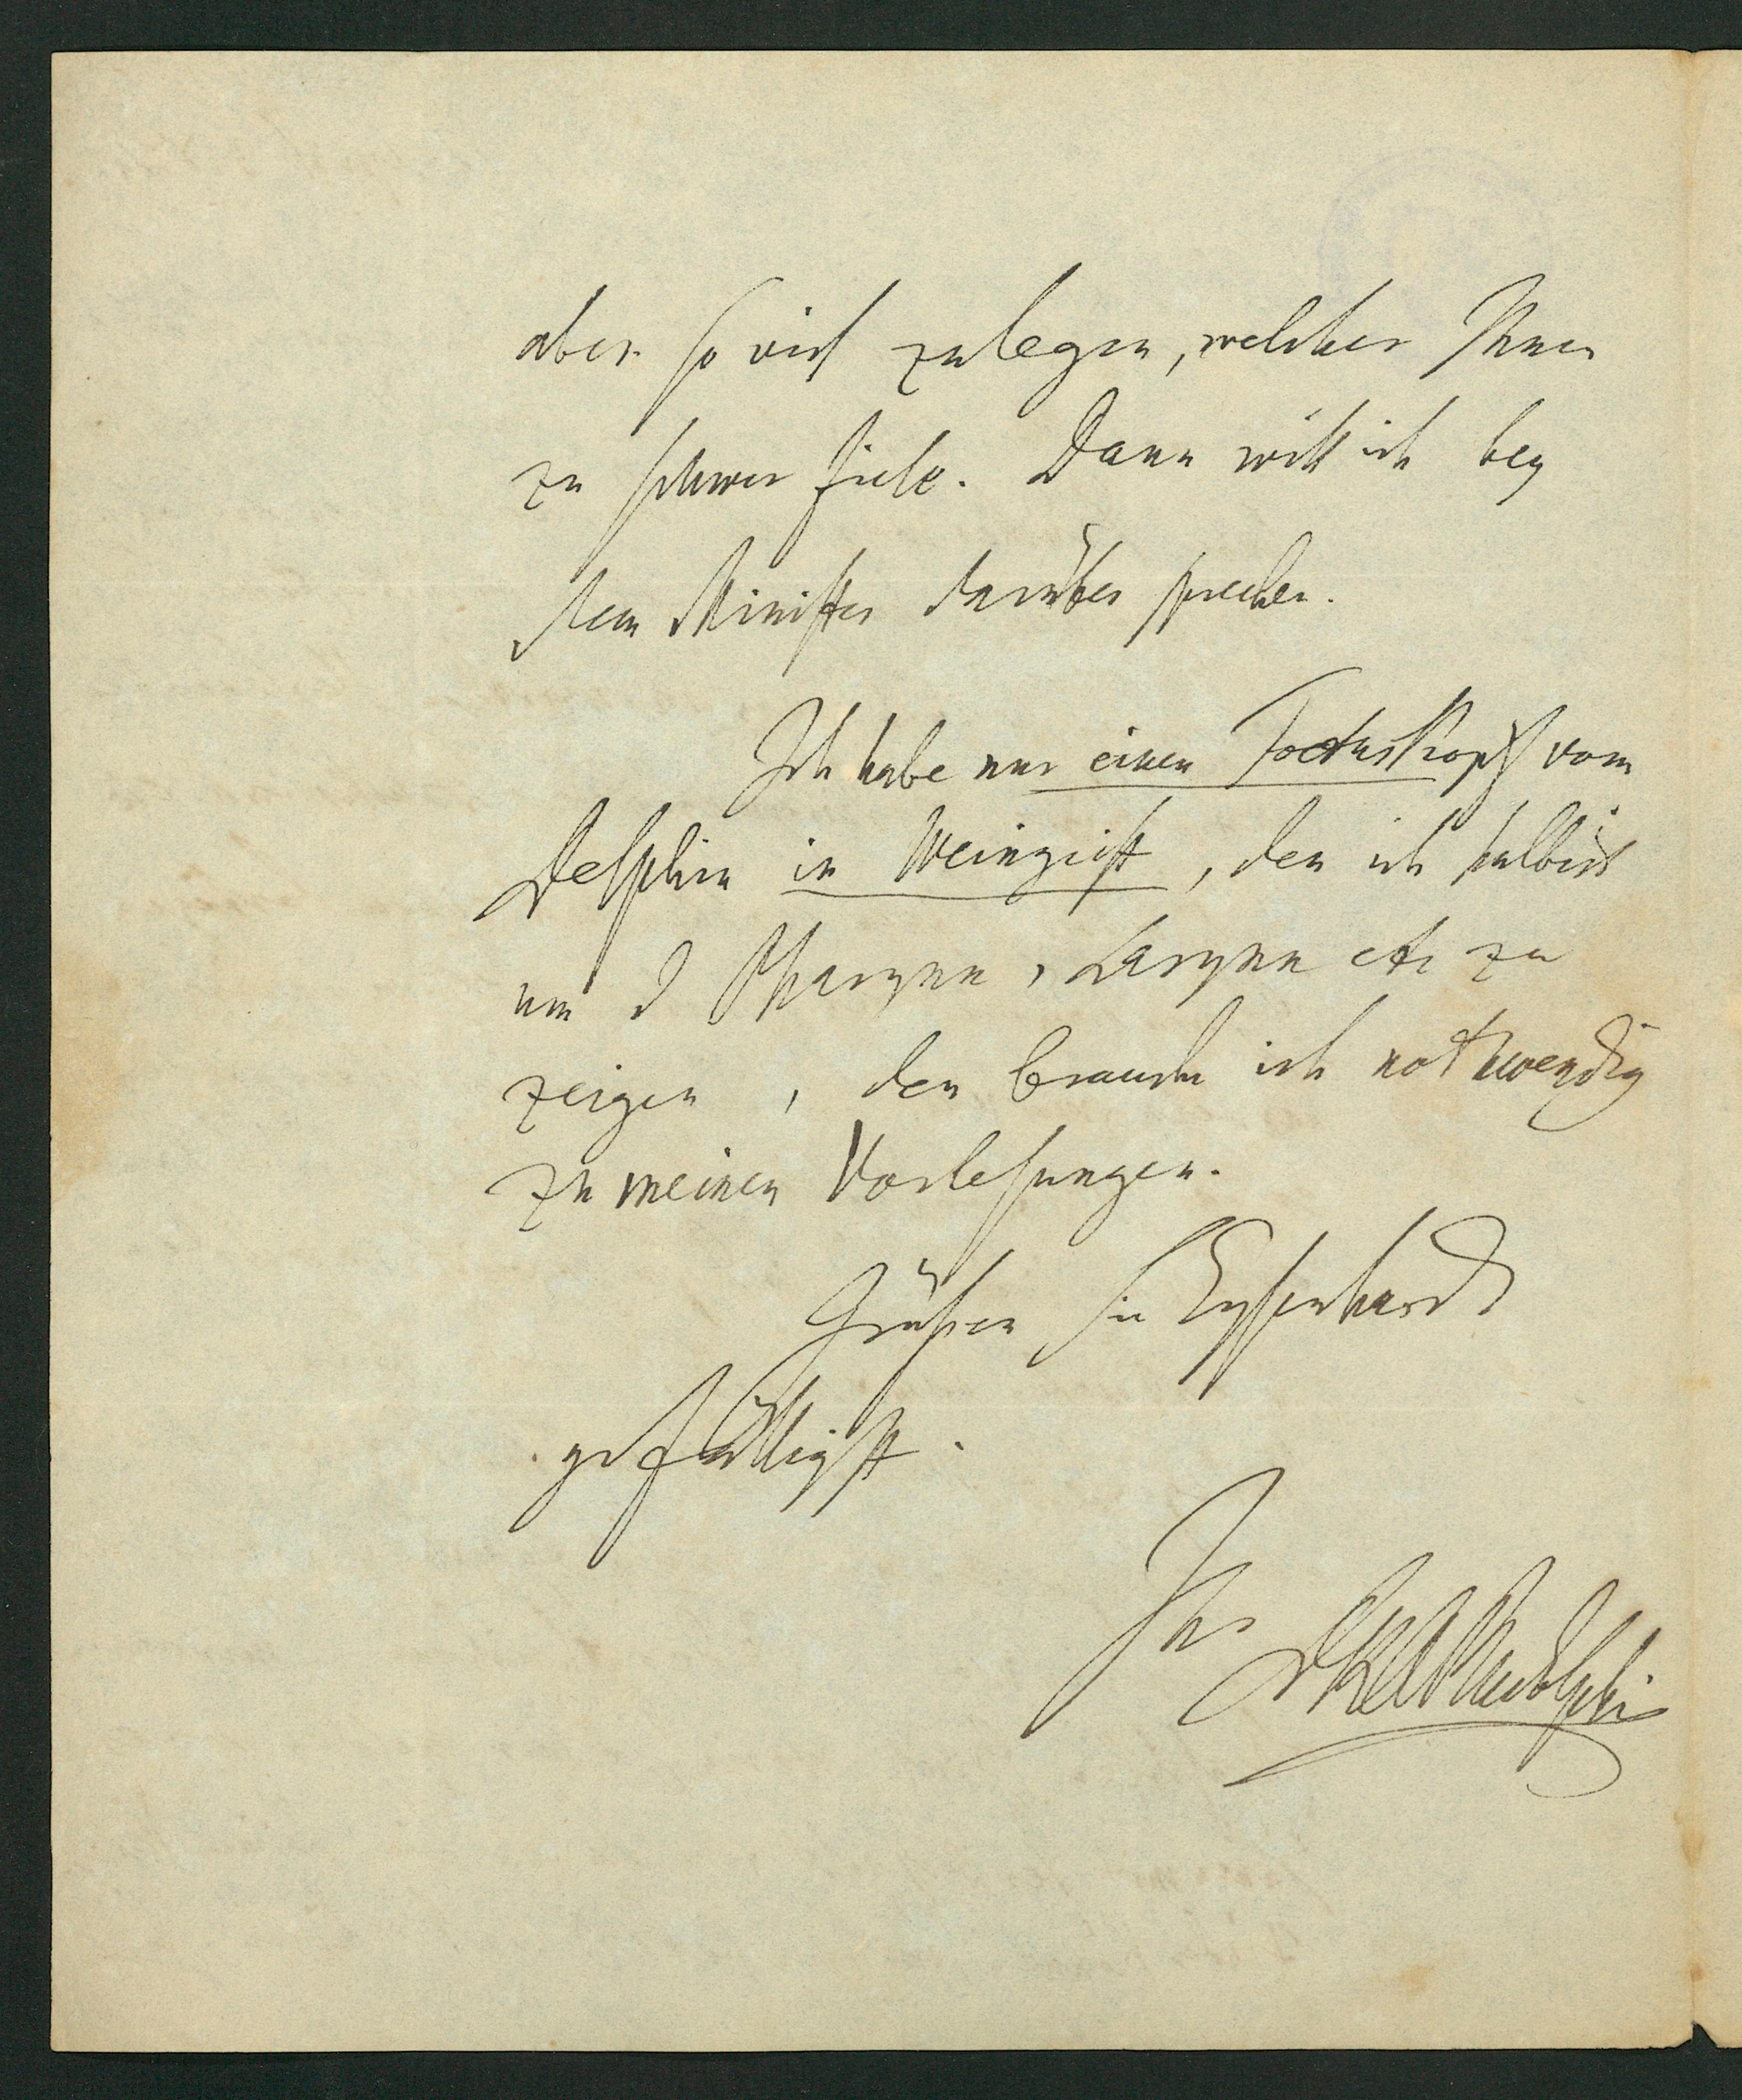 aber so viel zulegen, welches Ihnen
zu schwer fiele. Dann will ich bey
dem Minister darüber sprechen.
Ich habe nur einen Foetuskopf vom
Delphin in Weingeist, den ich halbirt
um d Pharynx, Larynx etc zu
zeigen, den brauche ich nothwendig
zu meinen Vorlesungen.
Grüßen Sie Eysenhardt
gefälligst.
Ihr
Rudolphi